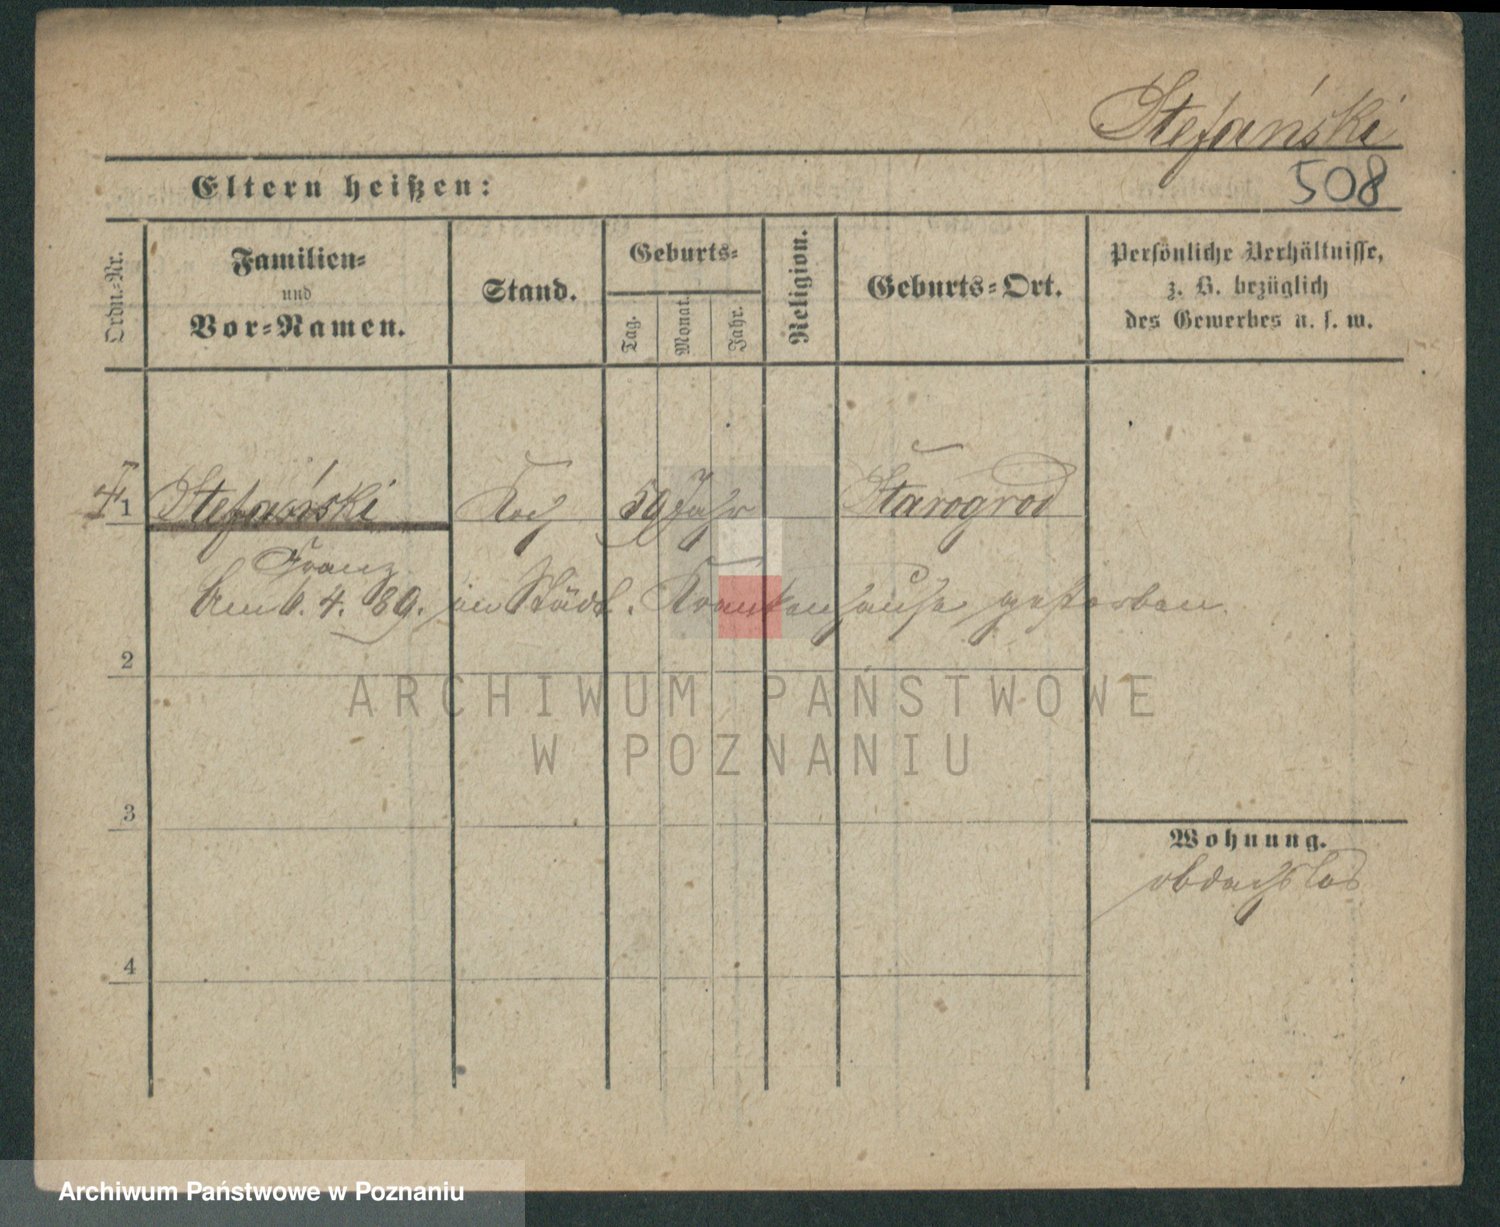 Stefański
508
Eltern heißen:
Ordn.-Nr.
Familien-
und
Vor-Namen.
Stand.
Geburts-
Tag.
Monat.
Jahr.
Religion.
Geburts-Ort.
Persönliche Verhältnisse,
z. B. bezüglich
des Gewerbes u. s. w.
1 Stefański Koch 59 Jahr Starogrod
Franz
Am 6. 4. 89. im Städt. Krankenhause gestorben.
2
ARCHIWUM PAŃSTWOWE
W POZNANIU
3
Wohnung.
obdachslos
4
Archiwum Państwowe w Poznaniu